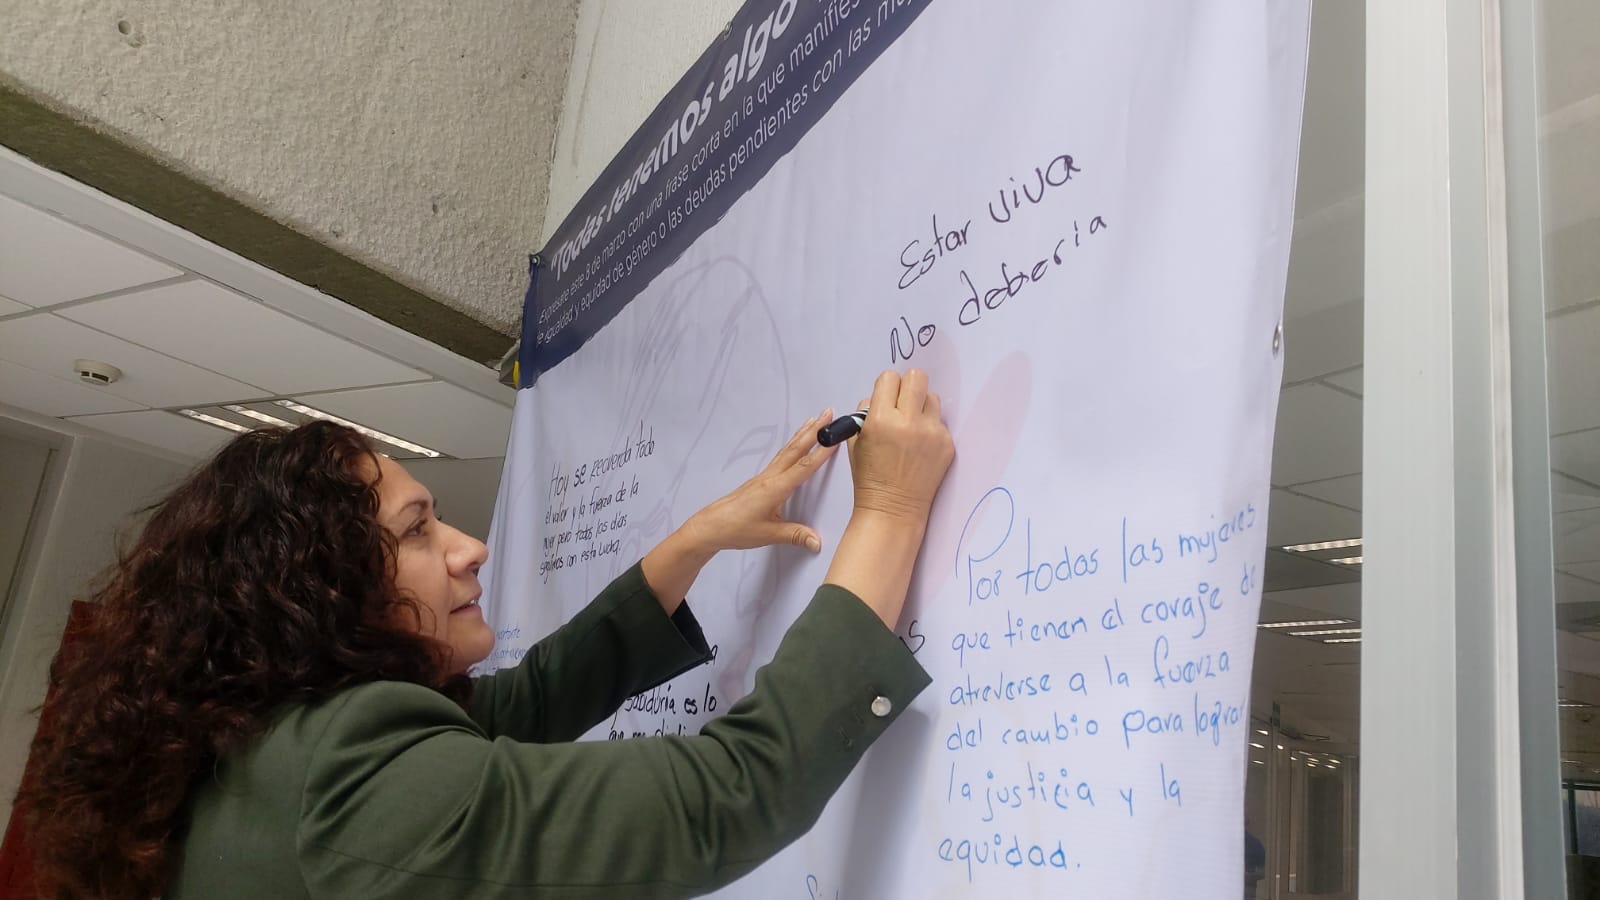 "Todas tenemos algo
Exprésate este 8 de marzo con una frase corta en la que manifies
de igualdad y equidad de género o las deudas pendientes con las
Estar viva
No deberia
Hoy se recuerda todo
el valor y la fuerza de la
mujer pero todos los días
seguimos con esta lucha.
Por todas las mujeres
que tienen el coraje de
atreverse a la fuerza
del cambio para lograr
la justicia y la
equidad.
y sabiduría es lo
que me